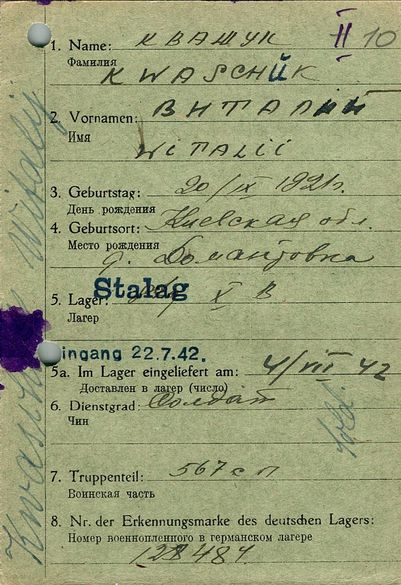 1. Name: КВАЩУК II 10
Фамилия
KWASCHUK
2. Vornamen: ВИТАЛИЙ
Имя
WITALII
3. Geburtstag: 20/IX 1921г.
День рождения
4. Geburtsort: Киевская обл.
Место рождения
д. Домантовка
Stalag
5. Lager: X B
Лагер
ingang 22.7.42.
5a. Im Lager eingeliefert am: 4/VII 42
Доставлен в лагер (число)
6. Dienstgrad: Солдат
Чин
Sold.
7. Truppenteil: 567 с п
Воинская часть
8. Nr. der Erkennungsmarke des deutschen Lagers:
Номер военнопленного в германском лагере
128484
Kwaschuk Witalij